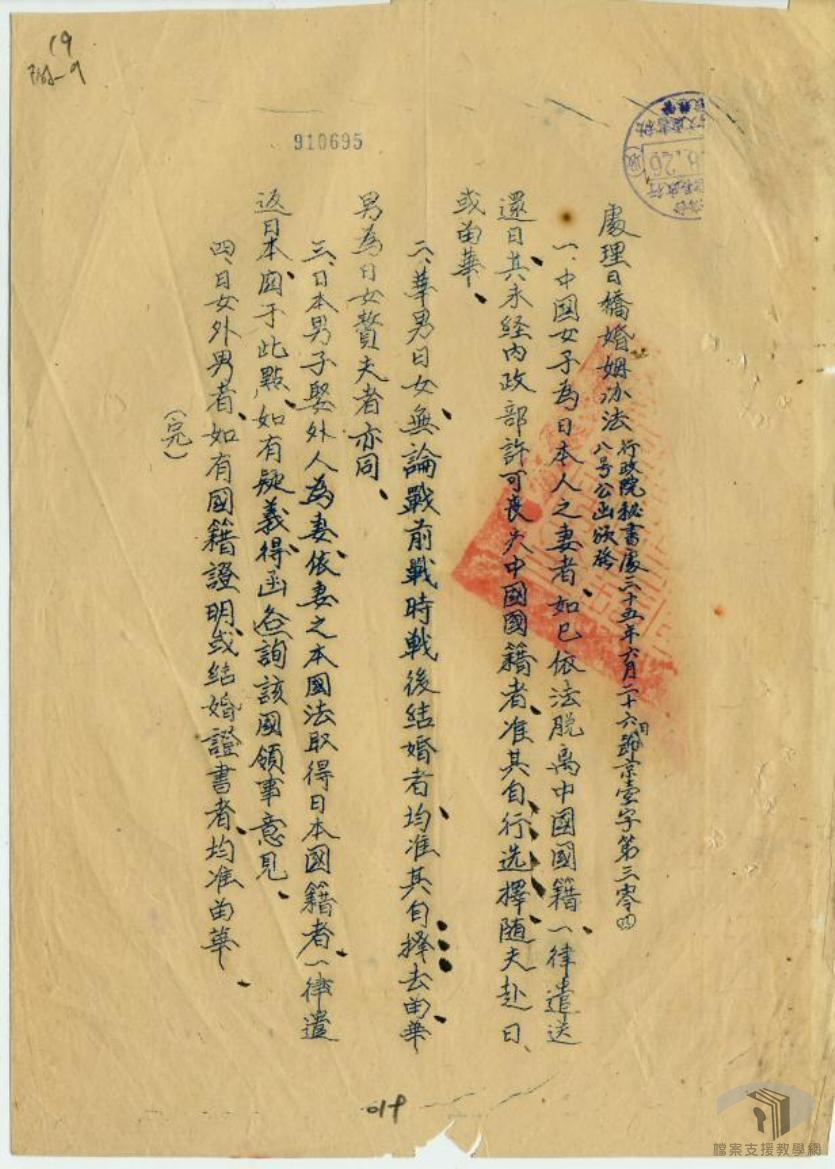 19
910695
處理日僑婚姻办法 行政院秘書處三十五年六月二十六日節京壹字第三零四
八号公函頒發
一、中国女子為日本人之妻者、如已依法脫离中國國籍、一律遣送
還日、其未经內政部許可喪失中國國籍者、准其自行选擇随夫赴日、
或留華、
二、華男日女、無論戰前戰時戰後結婚者、均准其自擇去留、華
男為日女贅夫者亦同、
三、日本男子娶外人為妻、依妻之本國法取得日本國籍者、一律遣
返日本、囡于此點、如有疑義、得函咨詢該國領事意見、
四、日女外男者、如有國籍證明、或结婚證書者、均准留華、
(完)
019
檔案支援教學網